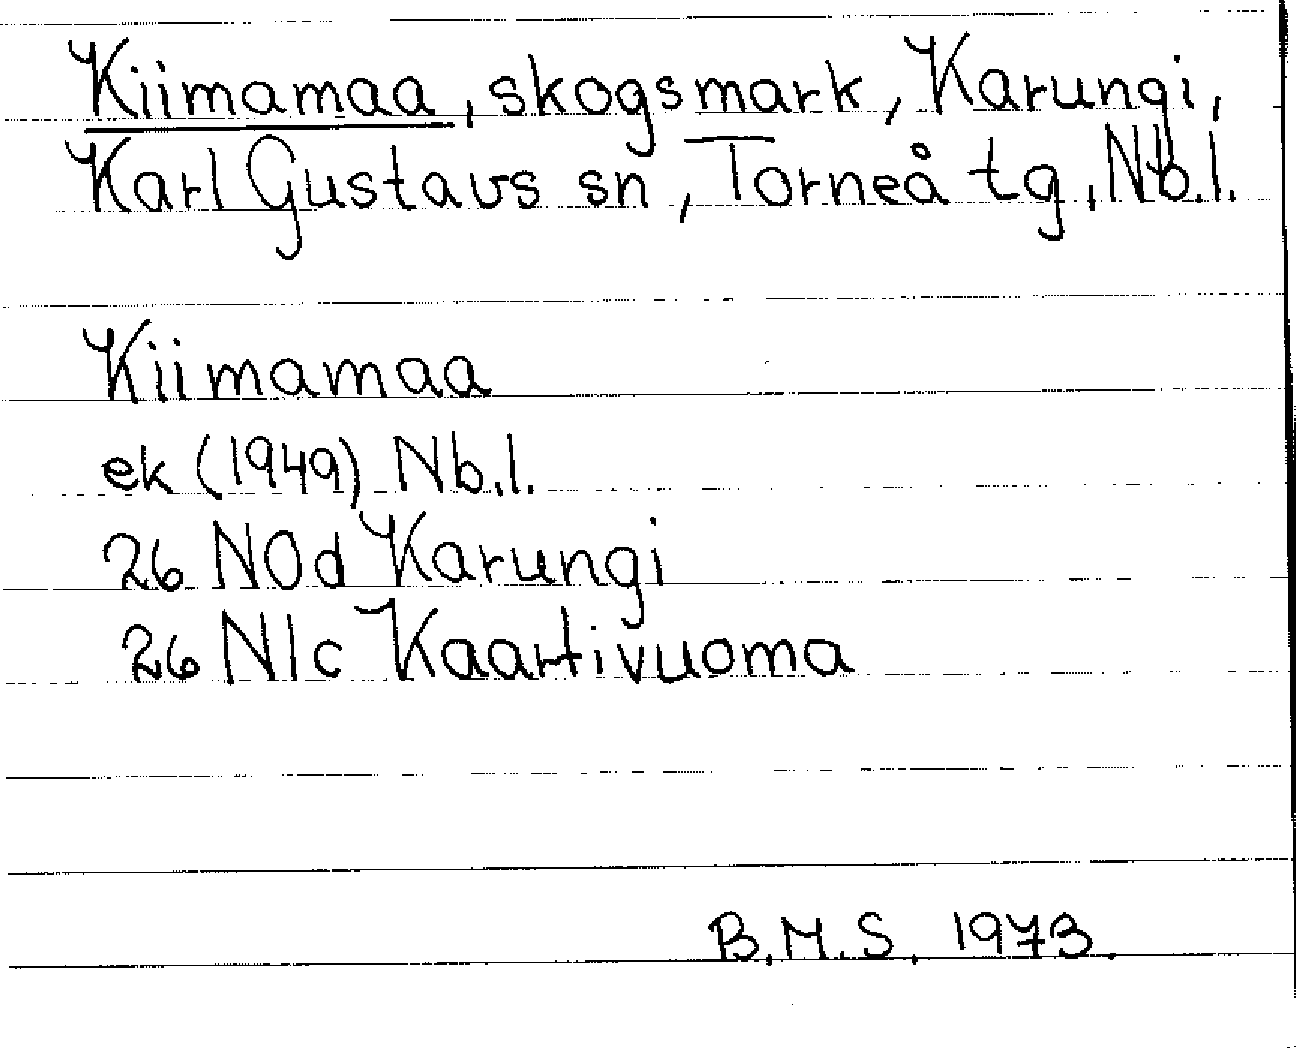 Kiimamaa, skogsmark, Karungi,
Karl Gustavs sn, Torneå tg, Nb.l.
Kiimamaa
ek (1949) Nb.l.
26 NOd Karungi
26 N1c Kaartivuoma
B.M.S. 1973.